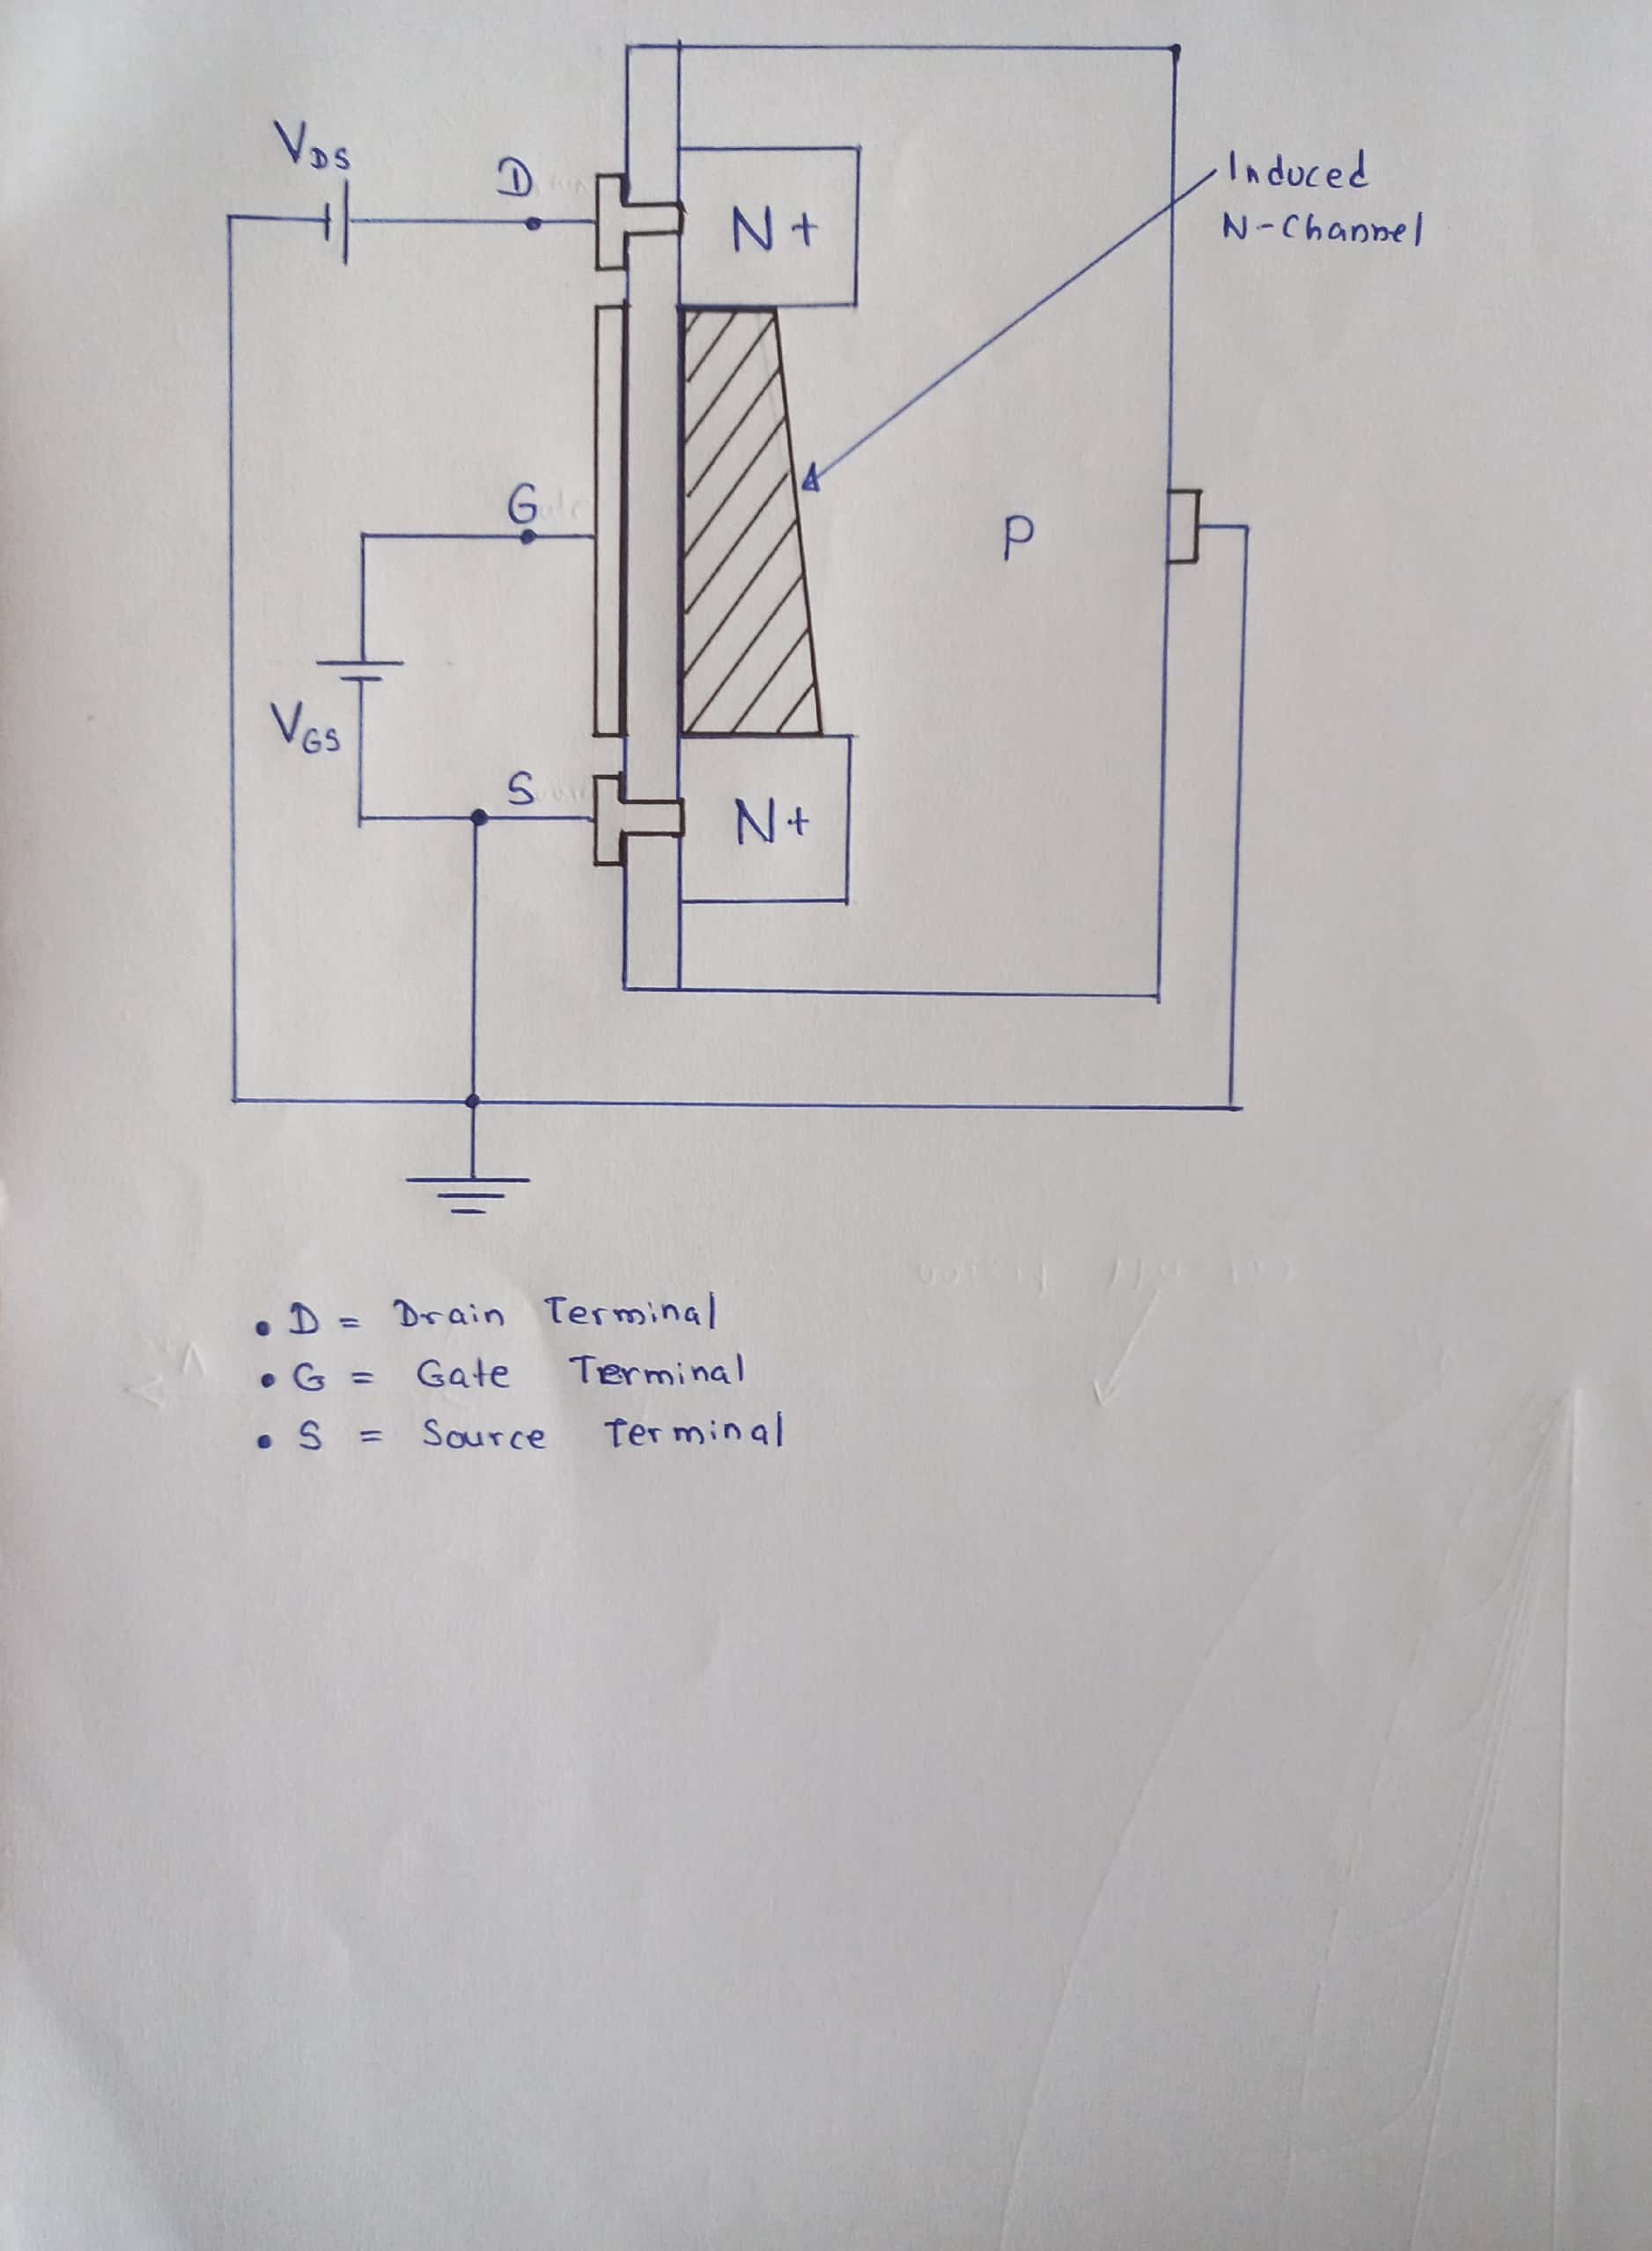 VDS
D
N+
Induced
N-Channel
G
P
VGS
S
N+
• D = Drain Terminal
• G = Gate Terminal
• S = Source Terminal